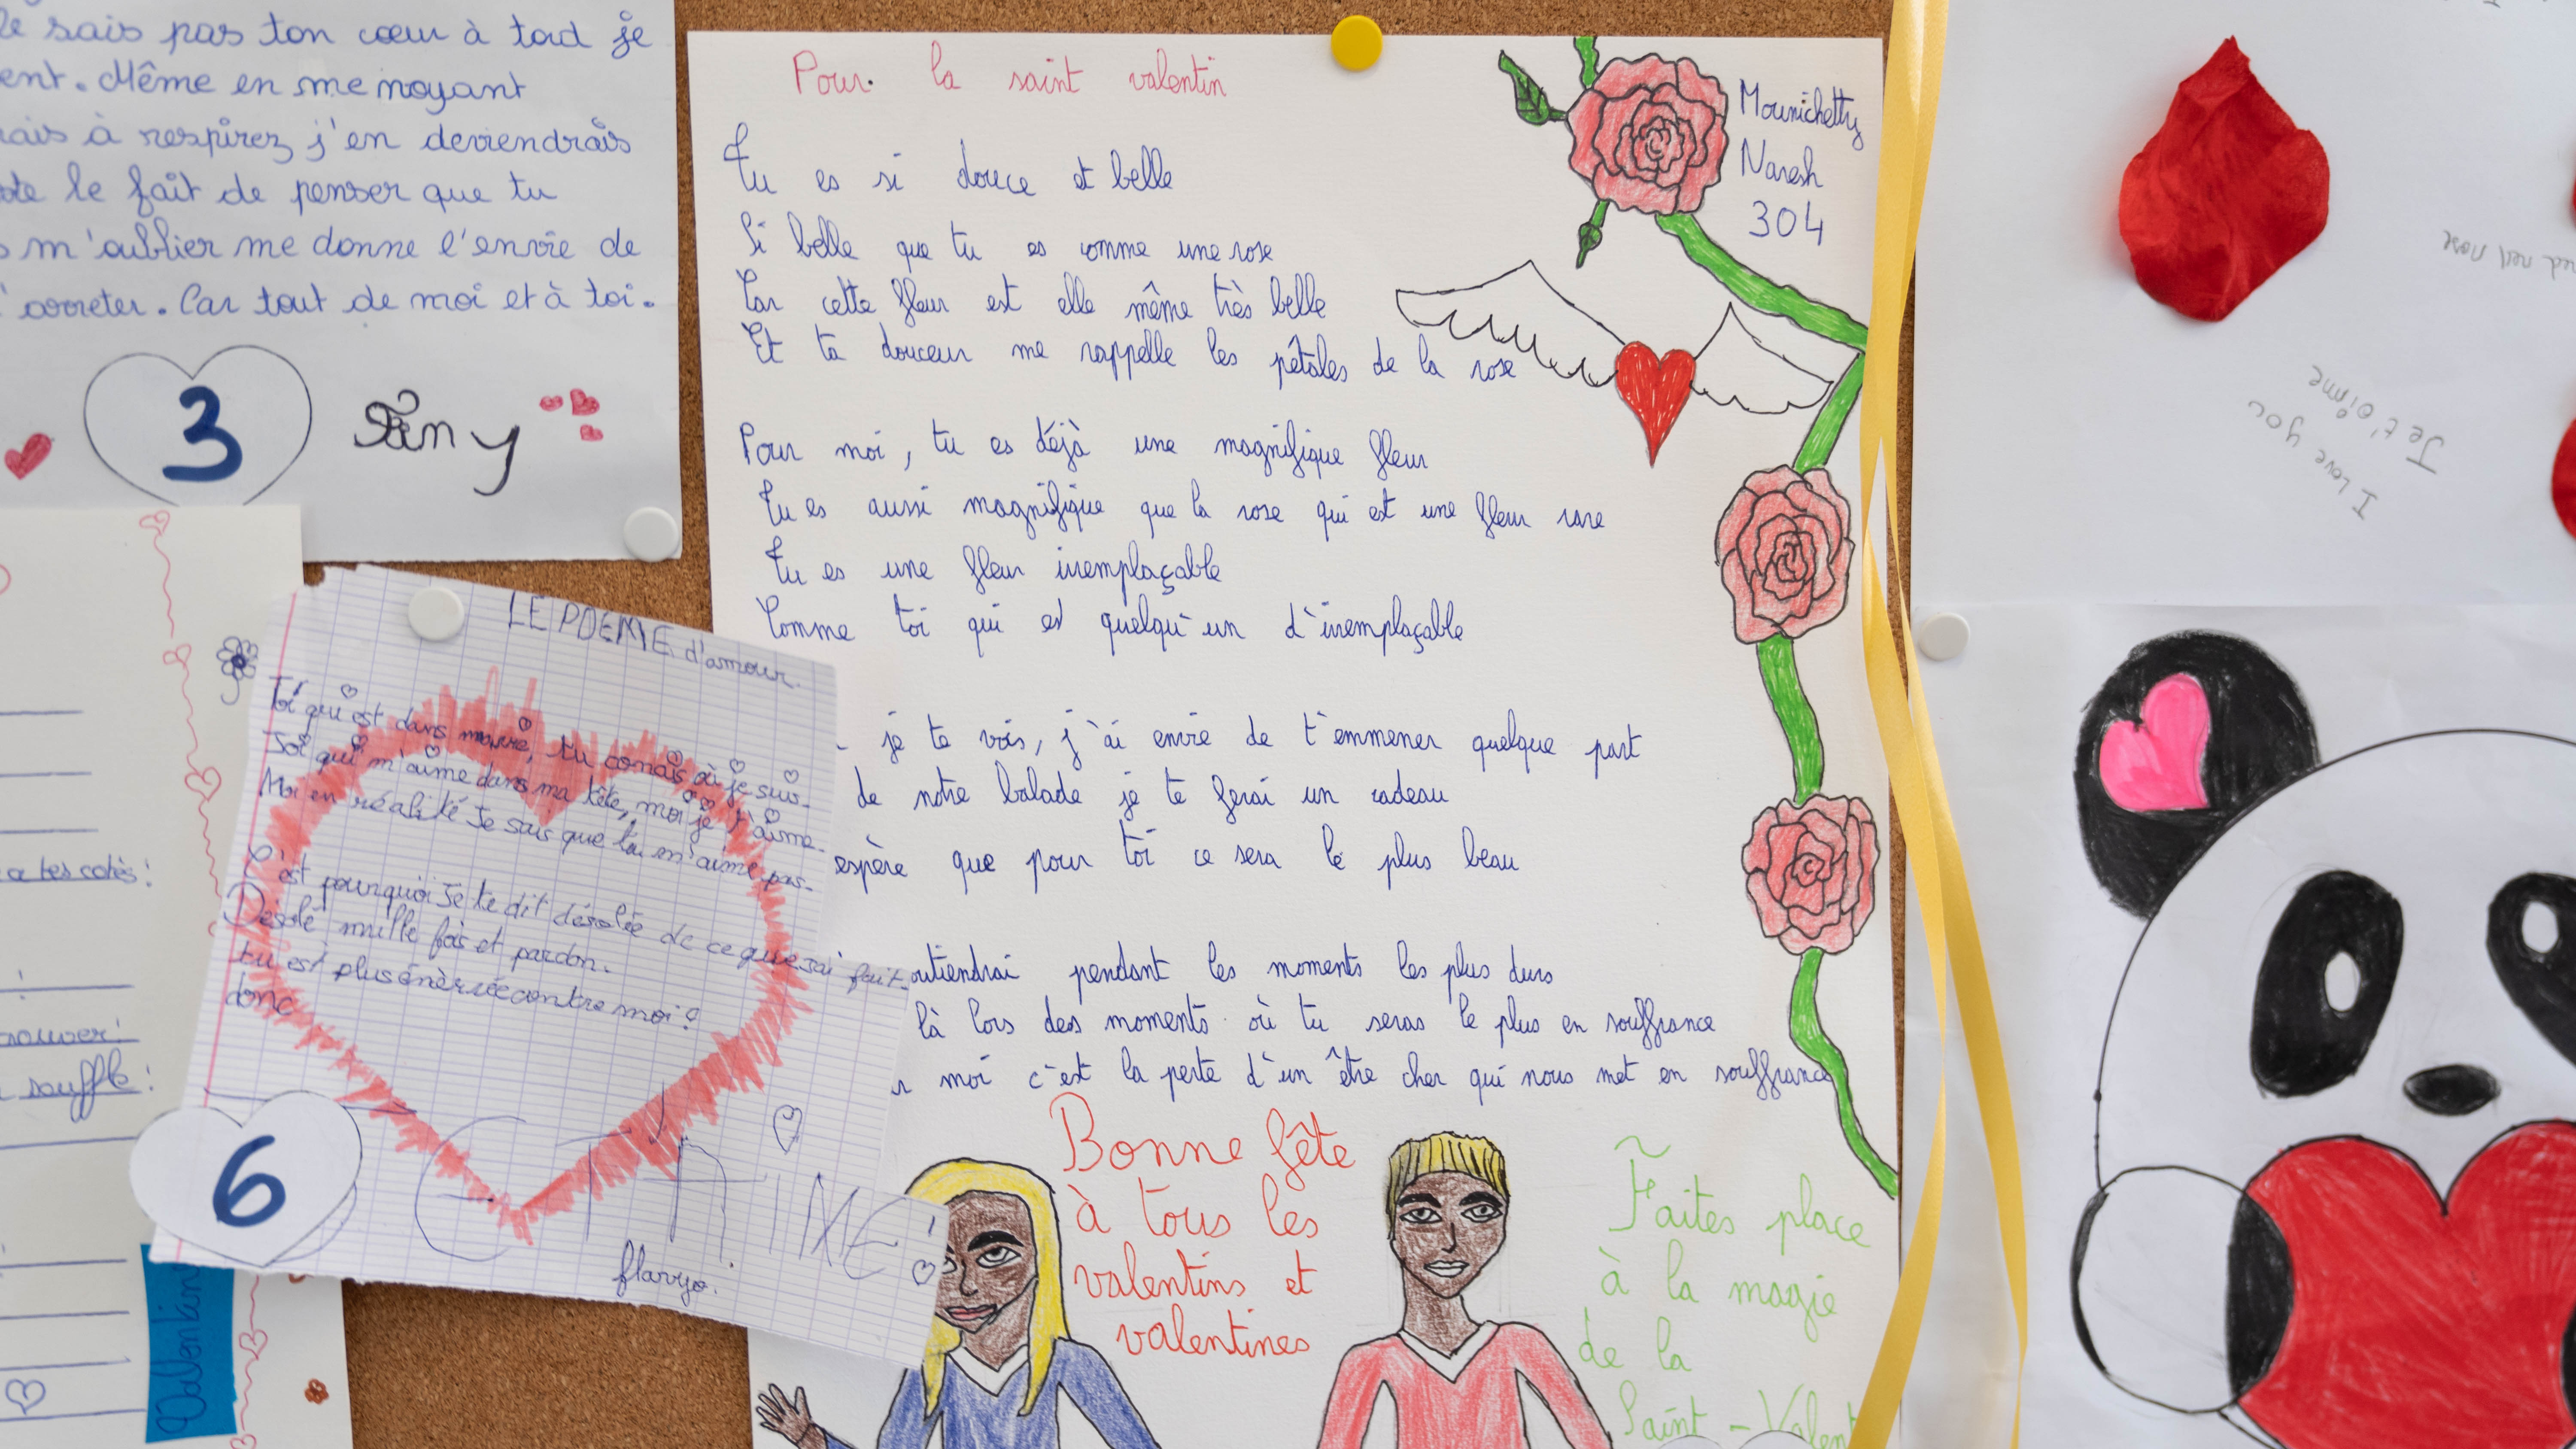 sais pas ton cœur à tord je
ent. Même en me noyant
rais à respirez j'en deviendrais
te le fait de penser que tu
m'oublier me donne l'envie de
arreter. Car tout de moi et à toi.
3
Fany
Pour la saint valentin
Mounichetty
Naresh
304
Tu es si douce et belle
Si belle que tu es comme une rose
Car cette fleur est elle même très belle
Et ta douceur me rappelle les pétales de la rose
Pour moi, tu es déjà une magnifique fleur
Tu es aussi magnifique que la rose qui est une fleur rare
Tu es une fleur irremplaçable
Comme toi qui es quelqu'un d'irremplaçable
je te vois, j'ai envie de t'emmener quelque part
de notre balade je te ferai un cadeau
espère que pour toi ce sera le plus beau
outiendrai pendant les moments les plus durs
là lors des moments où tu seras le plus en souffrance
moi c'est la perte d'un être cher qui nous met en souffrance
Bonne fête
à tous les
valentins et
valentines
Faites place
à la magie
de la
Saint-Valent
LE POEME d'amour.
Toi qui est dans tu conais où je suis.
Toi qui m'aime dans ma tête, moi je t'aime.
Moi en réalité Je sais que tu m'aime pas.
C'est pourquoi Je te dit désolée de ce que j'ai fait.
Désolé mille fois et pardon.
tu est plus énèrvée contre moi?
donc
JE T'AIME!
flavyo.
6
a tes cotés!
!
rouver!
souffle!
Valentin
red rose
Je t'aime
I love you